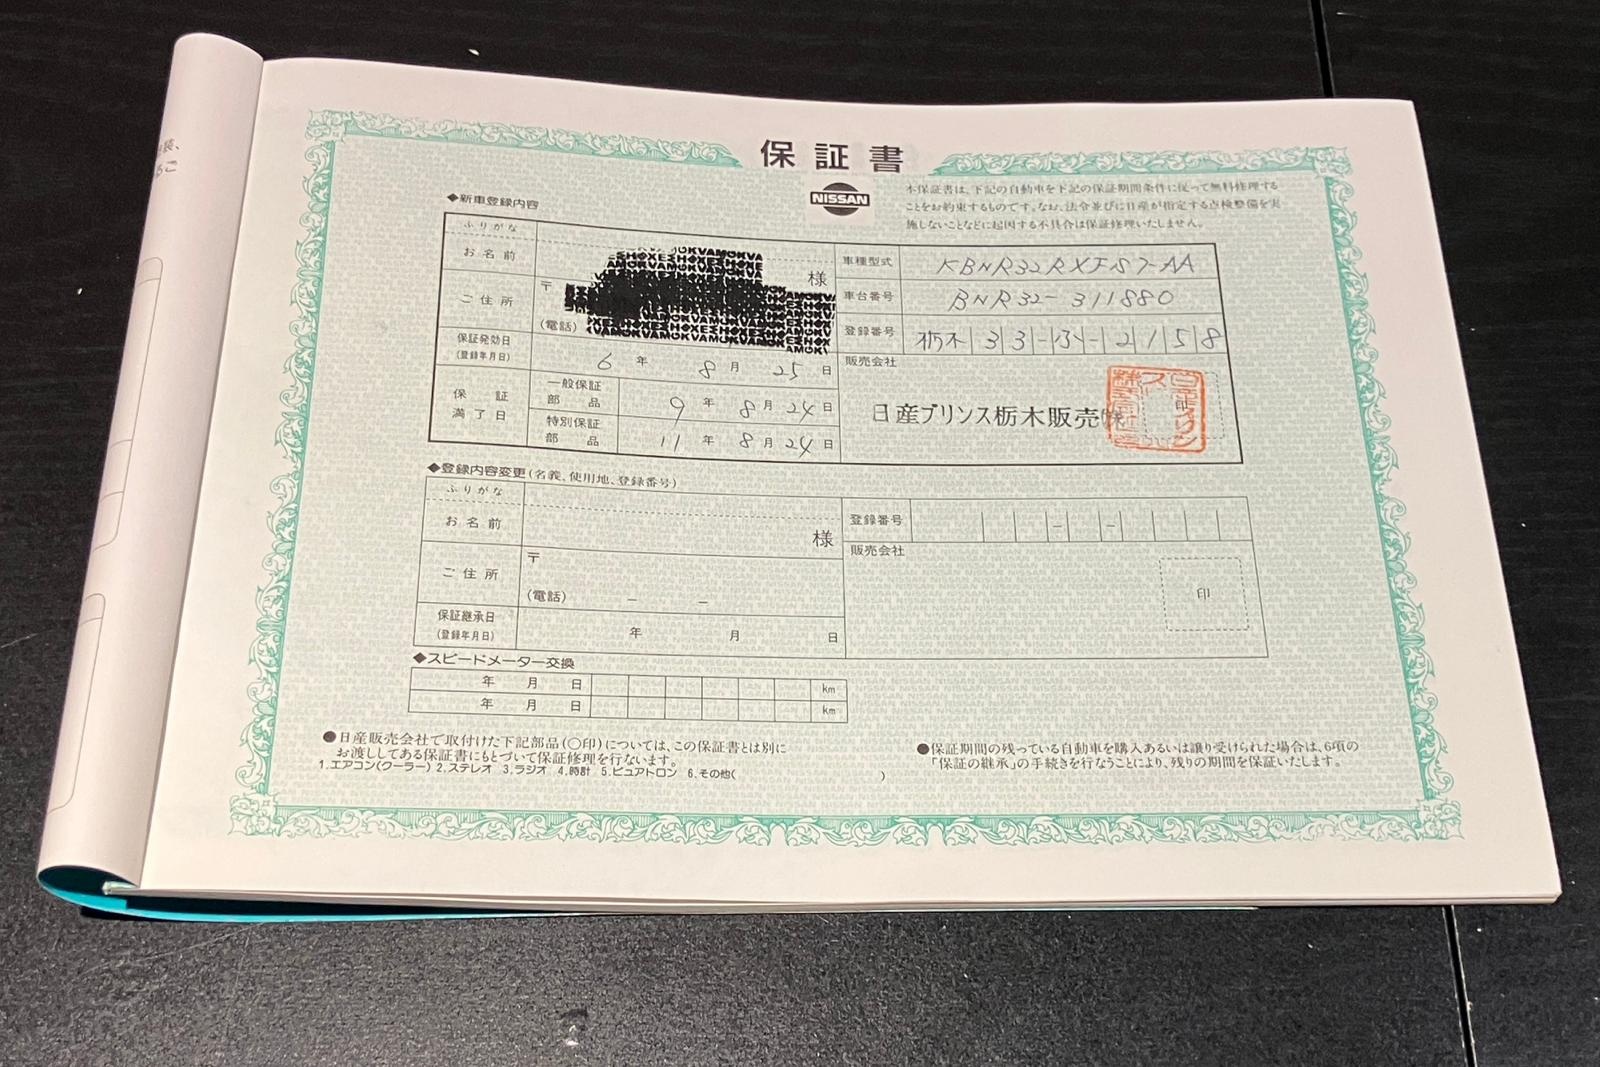 保証書
NISSAN
本保証書は、下記の自動車を下記の保証期間条件に従って無料修理する
ことをお約束するものです。なお、法令並びに日産が指定する点検整備を実
施しないことなどに起因する不具合は保証修理いたしません。
◆新車登録内容
ふりがな
お名前 様
ご住所 〒
(電話)
保証発効日
(登録年月日) 6年 8月 25日
保証満了日
一般保証部品 9年 8月 24日
特別保証部品 11年 8月 24日
車種型式 KBNR32RXFS7-AA
車台番号 BNR32-311880
登録番号 栃木 33 - - 2158
販売会社
日産プリンス栃木販売㈱
印
◆登録内容変更(名義、使用地、登録番号)
ふりがな
お名前 様
ご住所 〒
(電話) − −
保証継承日
(登録年月日) 年 月 日
登録番号 − −
販売会社
印
◆スピードメーター交換
年 月 日 km
年 月 日 km
●日産販売会社で取付けた下記部品(○印)については、この保証書とは別に
お渡ししてある保証書にもとづいて保証修理を行ないます。
1.エアコン(クーラー) 2.ステレオ 3.ラジオ 4.時計 5.ピュアトロン 6.その他( )
●保証期間の残っている自動車を購入あるいは譲り受けられた場合は、6項の
「保証の継承」の手続きを行なうことにより、残りの期間を保証いたします。